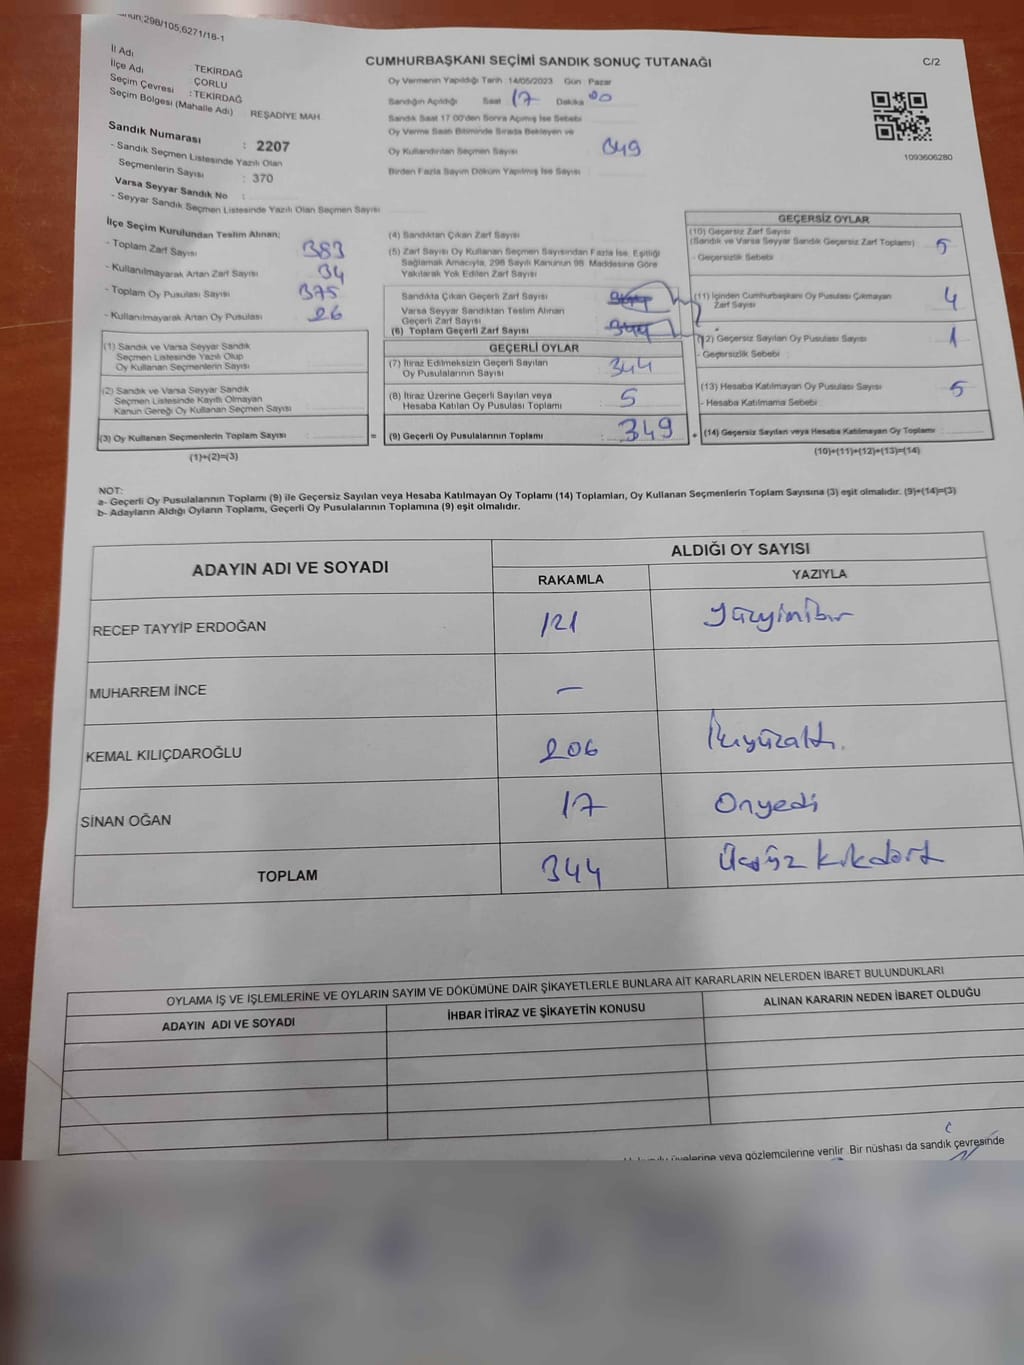 298/105,6271/18-1
C/2
İl Adı : TEKİRDAĞ
İlçe Adı : ÇORLU
Seçim Çevresi : TEKİRDAĞ
Seçim Bölgesi (Mahalle Adı) REŞADİYE MAH.
Sandık Numarası : 2207
- Sandık Seçmen Listesinde Yazılı Olan
Seçmenlerin Sayısı : 370
Varsa Seyyar Sandık No :
- Seyyar Sandık Seçmen Listesinde Yazılı Olan Seçmen Sayısı
CUMHURBAŞKANI SEÇİMİ SANDIK SONUÇ TUTANAĞI
Oy Vermenin Yapıldığı Tarih 14/05/2023 Gün : Pazar
Sandığın Açıldığı Saat 17 Dakika 00
Sandık Saat 17:00'den Sonra Açılmış İse Sebebi
Oy Verme Saati Bitiminde Sırada Bekleyen ve
Oy Kullandırılan Seçmen Sayısı 349
Birden Fazla Sayım Döküm Yapılmış İse Sayısı :
1093606280
İlçe Seçim Kurulundan Teslim Alınan;
- Toplam Zarf Sayısı 383
- Kullanılmayarak Artan Zarf Sayısı 34
- Toplam Oy Pusulası Sayısı 375
- Kullanılmayarak Artan Oy Pusulası 26
(1) Sandık ve Varsa Seyyar Sandık
Seçmen Listesinde Yazılı Olup
Oy Kullanan Seçmenlerin Sayısı
(2) Sandık ve Varsa Seyyar Sandık
Seçmen Listesinde Kayıtlı Olmayan
Kanun Gereği Oy Kullanan Seçmen Sayısı :
(3) Oy Kullanan Seçmenlerin Toplam Sayısı :
(1)+(2)=(3)
(4) Sandıktan Çıkan Zarf Sayısı
(5) Zarf Sayısı Oy Kullanan Seçmen Sayısından Fazla İse, Eşitliği
Sağlamak Amacıyla, 298 Sayılı Kanunun 98. Maddesine Göre
Yakılarak Yok Edilen Zarf Sayısı
Sandıkta Çıkan Geçerli Zarf Sayısı
Varsa Seyyar Sandıktan Teslim Alınan
Geçerli Zarf Sayısı
(6) Toplam Geçerli Zarf Sayısı 344
GEÇERLİ OYLAR
(7) İtiraz Edilmeksizin Geçerli Sayılan
Oy Pusulalarının Sayısı : 344
(8) İtiraz Üzerine Geçerli Sayılan veya
Hesaba Katılan Oy Pusulası Toplamı : 5
= (9) Geçerli Oy Pusulalarının Toplamı : 349 +
GEÇERSİZ OYLAR
(10) Geçersiz Zarf Sayısı
(Sandık ve Varsa Seyyar Sandık Geçersiz Zarf Toplamı) 5
- Geçersizlik Sebebi
(11) İçinden Cumhurbaşkanı Oy Pusulası Çıkmayan
Zarf Sayısı 4
(12) Geçersiz Sayılan Oy Pusulası Sayısı 1
- Geçersizlik Sebebi
(13) Hesaba Katılmayan Oy Pusulası Sayısı 5
- Hesaba Katılmama Sebebi
(14) Geçersiz Sayılan veya Hesaba Katılmayan Oy Toplamı :
(10)+(11)+(12)+(13)=(14)
NOT:
a- Geçerli Oy Pusulalarının Toplamı (9) ile Geçersiz Sayılan veya Hesaba Katılmayan Oy Toplamı (14) Toplamları, Oy Kullanan Seçmenlerin Toplam Sayısına (3) eşit olmalıdır. (9)+(14)=(3)
b- Adayların Aldığı Oyların Toplamı, Geçerli Oy Pusulalarının Toplamına (9) eşit olmalıdır.
ADAYIN ADI VE SOYADI
ALDIĞI OY SAYISI
RAKAMLA YAZIYLA
RECEP TAYYİP ERDOĞAN 121 Yüzyirmibir
MUHARREM İNCE —
KEMAL KILIÇDAROĞLU 206 İkiyüzaltı.
SİNAN OĞAN 17 Onyedi
TOPLAM 344 Üçyüz kırkdört
OYLAMA İŞ VE İŞLEMLERİNE VE OYLARIN SAYIM VE DÖKÜMÜNE DAİR ŞİKAYETLERLE BUNLARA AİT KARARLARIN NELERDEN İBARET BULUNDUKLARI
ADAYIN ADI VE SOYADI İHBAR İTİRAZ VE ŞİKAYETİN KONUSU ALINAN KARARIN NEDEN İBARET OLDUĞU
üyelerine veya gözlemcilerine verilir. Bir nüshası da sandık çevresinde